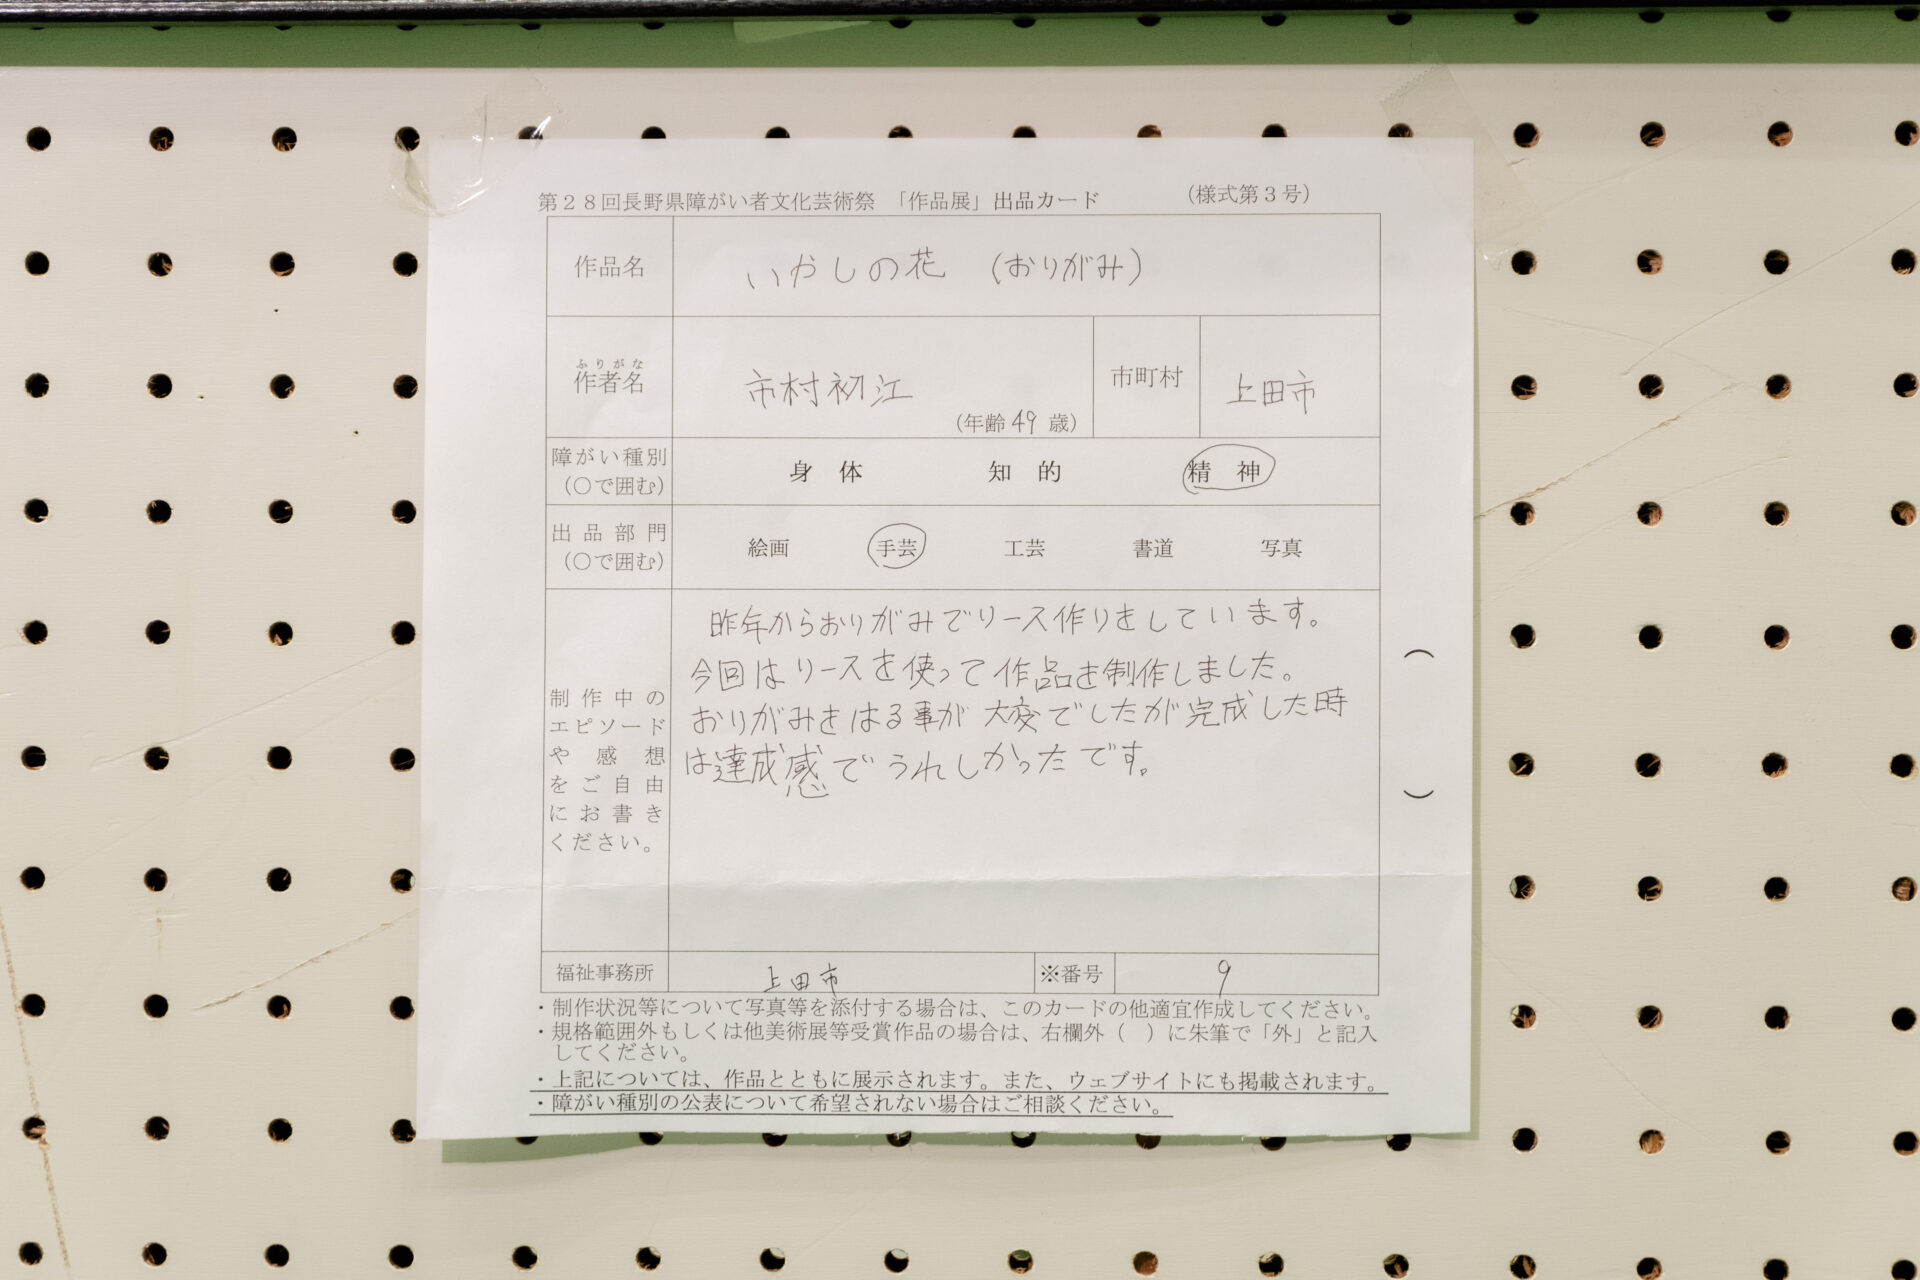 第28回長野県障がい者文化芸術祭 「作品展」出品カード (様式第3号)
作品名 いやしの花 (おりがみ)
ふりがな
作者名 市村初江 (年齢 49 歳) 市町村 上田市
障がい種別 (○で囲む) 身 体 知 的 精 神
出品部門 (○で囲む) 絵画 手芸 工芸 書道 写真
制作中の
エピソード
や感想
をご自由
にお書き
ください。
昨年からおりがみでリース作りをしています。
今回はリースを使って作品を制作しました。
おりがみをはる事が大変でしたが完成した時
は達成感でうれしかったです。
( )
福祉事務所 上田市 ※番号 9
・制作状況等について写真等を添付する場合は、このカードの他適宜作成してください。
・規格範囲外もしくは他美術展等受賞作品の場合は、右欄外( )に朱筆で「外」と記入
してください。
・上記については、作品とともに展示されます。また、ウェブサイトにも掲載されます。
・障がい種別の公表について希望されない場合はご相談ください。